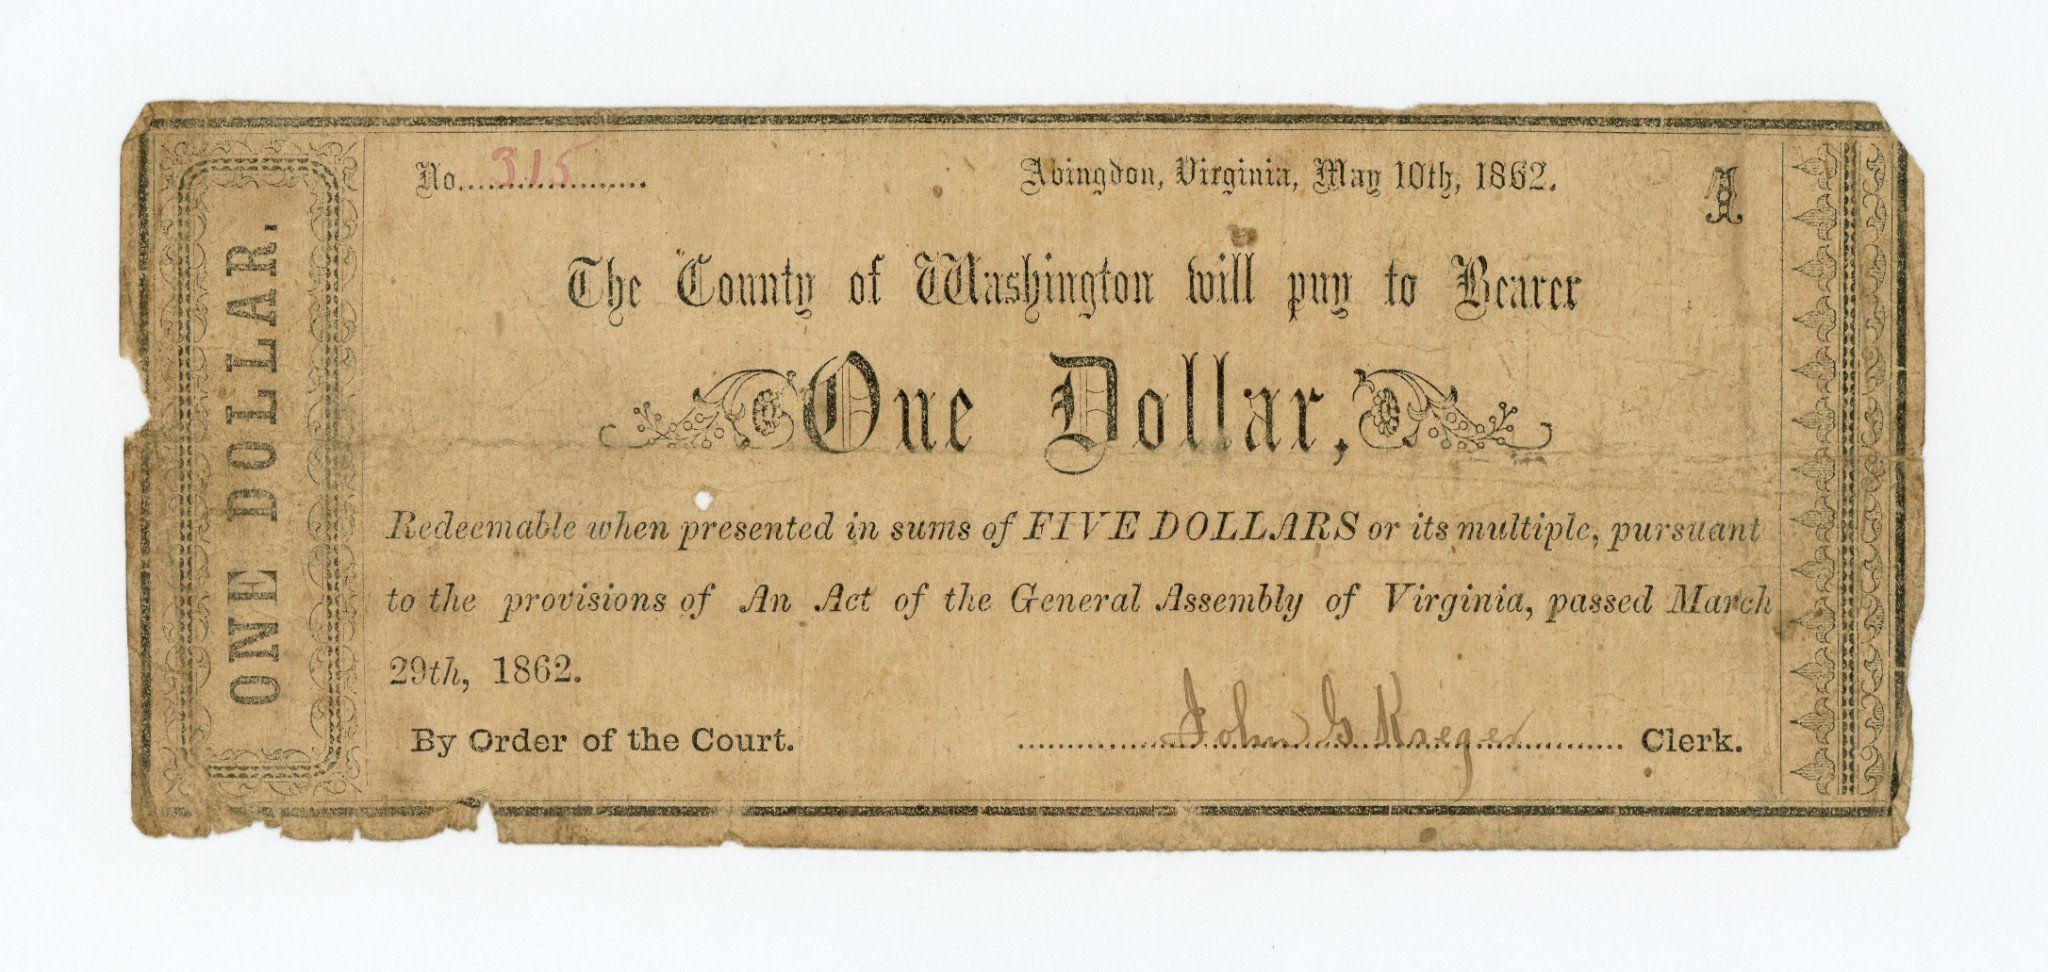 ONE DOLLAR.
No. 315
Abingdon, Virginia, May 10th, 1862.
1
The County of Washington will pay to Bearer
One Dollar,
Redeemable when presented in sums of FIVE DOLLARS or its multiple, pursuant
to the provisions of An Act of the General Assembly of Virginia, passed March
29th, 1862.
By Order of the Court. John G Kreger Clerk.